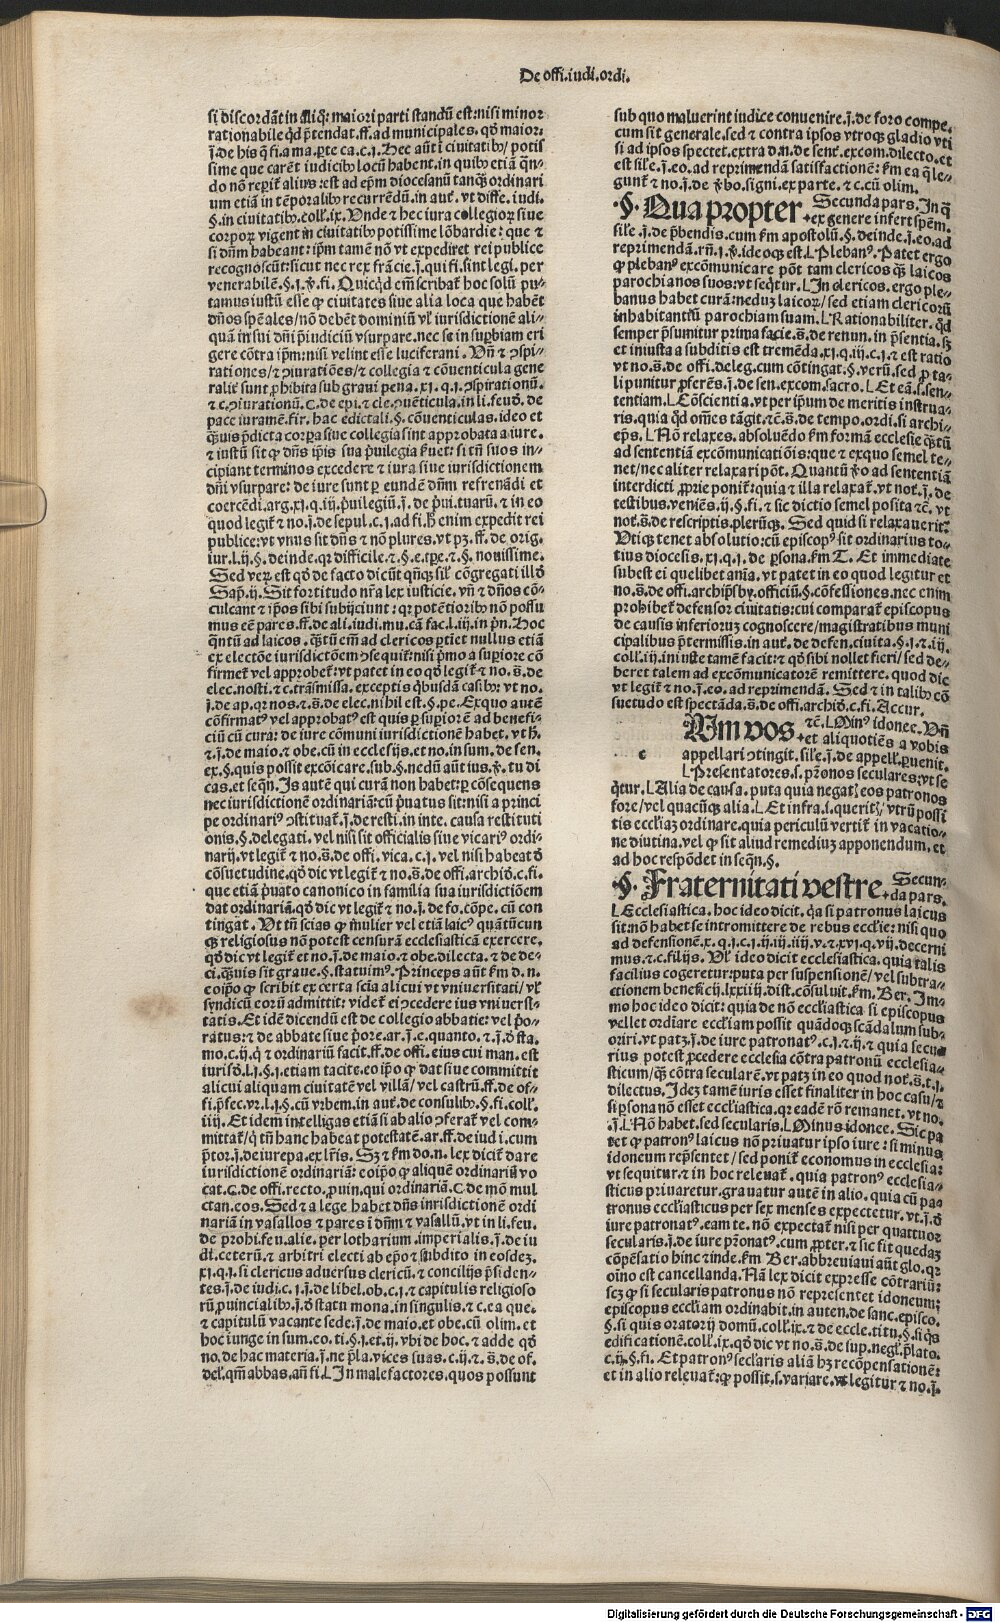 De offi. iudi. ordi.
si discordāt in aliq̄: maiori parti standū est: nisi minor
rationabile qd p̄tendat. ff. ad municipales. qd maior.
j. de his q̄ fi. a ma. parte ca. c. j. Hec aūt ī ciuitatibꝰ potis
sime que carēt iudicibꝰ locū habent. in quibꝰ etiā qn̄-
do nō reperit alius: est ad ep̄m diocesanū tanq̄ ordinari
um etiā in tēporalibꝰ recurrēdū. in aut. vt diffe. iudi.
§. in ciuitatibꝰ. coll. ix. Unde ⁊ hec iura collegior siue
corpor vigent in ciuitatibꝰ potissime lōbardie: que ⁊
si dn̄m habeant: ip̄m tamē nō vt expediret rei publice
recognoscūt: sicut nec rex frācie. j. qui fi. sint legi. per
venerabilē. §. j. ꝟ. fi. Quicqd em̄ scribat hoc solū pu-
tamus iustū esse ꝙ ciuitates siue alia loca que habēt
dn̄os sp̄eales/ nō debēt dominiū vl iurisdictionē ali-
quā in sui dn̄i p̄iudiciū vsurpare. nec se in supbiam eri
gere cōtra ip̄m: nisi velint esse luciferani. Un̄ ⁊ ꝯspi-
rationes/ ⁊ ꝯiurationēs/ ⁊ collegia ⁊ cōuenticula gene
ralit sunt ꝓhibita sub graui pena. xj. q. j. ꝯspirationū.
⁊ c. ꝯiurationū. C. de epi. ⁊ cle. ꝯuēticula. in li. feud. de
pace iuramē. fir. hac edictali. §. cōuenticulas. ideo et
q̄uis p̄dicta corpa siue collegia sint approbata a iure.
⁊ iustū sit ꝙ dn̄s ip̄is sua p̄uilegia ſuet: si tn̄ suos in-
cipiant terminos excedere ⁊ iura siue iurisdictionem
dn̄i vsurpare: de iure sunt per eundē dn̄m refrenādi et
coercēdi. arg. xj. q. iij. p̄uilegiū. j. de p̄ui. tuarū. ⁊ in eo
quod legit ⁊ no. j. de sepul. c. j. ad fi. h̄ enim expedit rei
publice: vt vnus sit dn̄s ⁊ nō plures. vt pz. ff. de orig.
iur. l. ij. §. deinde. qr difficile. ⁊ §. e. tpe. ⁊ §. nouissime.
Sed veꝝ est qd de facto dicūt qn̄q sil cōgregati illd
Sap. ij. Sit fortitudo nr̄a lex iusticie. vn̄ ⁊ dn̄os cō-
culcant ⁊ ip̄os sibi subijciunt: qr potētioribꝰ nō possu
mus eē pares. ff. de ali. iudi. mu. cā fac. l. iij. in prin. Hoc
qn̄tū ad laicos. q̄tū em̄ ad clericos ptiet nullus etiā
ex electōe iurisdictōem ꝯsequit: nisi p̄mo a supiore cō
firmet vel approbet: vt patet in eo qd legit ⁊ no. s. de
elec. nosti. ⁊ c. trāsmissa. exceptis qbusdā casibꝰ: vt no.
j. de ap. qr nos. ⁊ s. de elec. nihil est. §. pe. Ex quo autē
cōfirmatꝰ vel approbatꝰ est quis per supiorē ad benefi-
ciū cū cura: de iure cōmuni iurisdictionē habet. vt h̄
⁊. j. de maio. ⁊ obe. cū in ecclesijs. et no. in sum. de sen.
ex. §. quis possit excōicare. sub. §. nedū aūt ius. ꝟ. tu di
cas. et seqn̄. Is autē qui curā non habet: per cōsequens
nec iurisdictionē ordinariā: cū p̄uatus sit: nisi a princi
pe ordinariꝰ ꝯstituat. j. de resti. in inte. causa restituti
onis. §. delegati. vel nisi sit officialis siue vicariꝰ ordi-
narij. vt legit ⁊ no. s. de offi. vica. c. j. vel nisi habeat d
cōsuetudine. qd dic vt legit ⁊ no. s. de offi. archid. c. fi.
que etiā p̄uato canonico in familia sua iurisdictiōem
dat ordinariā. qd dic vt legit ⁊ no. j. de fo. cōpe. cū con
tingat. Ut tn̄ scias ꝙ mulier vel etiā laicꝰ quātūcun
q̄ religiosus nō potest censurā ecclesiasticā exercere.
qd dic vt legit et no. j. de maio. ⁊ obe. dilecta. ⁊ de de-
ci. q̄uis sit graue. §. statuimꝰ. Princeps aūt km d. n.
eo ip̄o ꝙ scribit ex certa scia alicui vt vniuersitati/ vl
syndicū eorū admittit: videt ei ꝯcedere ius vniuersi-
tatis. Et idē dicendū est de collegio abbatie: vel p̄o-
ratus: ⁊ de abbate siue p̄ore. ar. j. e. quanto. ⁊. j. d sta.
mo. c. ij. q̄ ⁊ ordinariū facit. ff. de offi. eius cui man. est
iurisd. l. j. §. j. etiam tacite. eo ip̄o ꝙ dat siue committit
alicui aliquam ciuitatē vel villā/ vel castrū. ff. de of-
fi. p̄fec. vr. l. j. §. cū vrbem. in aut. de consulibꝰ. §. fi. coll.
iiij. Et idem intelligas etiā si ab alio ꝯferat vel com-
mittat/ q̄ tn̄ hanc habeat potestatē. ar. ff. de iudi. cum
p̄tor. j. de iurepa. ex lr̄is. Sz ⁊ km do. n. lex dicit dare
iurisdictionē ordinariā: eo ip̄o ꝙ aliquē ordinariū vo
cat. C. de offi. recto. ꝓuin. qui ordinariā. C. de mō mul
ctan. eos. Sed ⁊ a lege habet dn̄s iurisdictionē ordi
nariā in vasallos ⁊ pares ī dn̄m ⁊ vasallū. vt in li. feu.
de prohi. feu. alie. per lotharium. imperialis. j. de iu
di. ceterū. ⁊ arbitri electi ab ep̄o ⁊ subdito in eosdez.
xj. q. j. si clericus aduersus clericū. ⁊ concilijs p̄siden-
tes. j. de iudi. c. j. j. de libel. ob. c. j. ⁊ capitulis religioso
rū ꝓuincialibꝰ. j. d statu mona. in singulis. ⁊ c. ea que.
⁊ capitulū vacante sede. j. de maio. et obe. cū olim. et
hoc īunge in sum. eo. ti. §. j. et. ij. vbi de hoc. ⁊ adde qd
no. de hac materia. j. ne p̄la. vices suas. c. ij. ⁊. s. de of.
del. qm̄ abbas. an̄ fi. L In malefactores. quos possunt
sub quo maluerint iudice conuenire. j. de foro compe.
cum sit generale. sed ⁊ contra ipsos vtroqꝫ gladio vti
si ad ipsos spectet. extra d. n. de sent. excom. dilecto. et
est sile. j. eo. ad reprimendā satisfactionē: km ea q̄ le-
gunt ⁊ no. j. de ꝟbo. signi. ex parte. ⁊ c. cū olim.
§. Qua propter. Secunda pars. In q̄
ex genere infert sp̄em.
sile. j. de p̄bendis. cum km apostolū. §. deinde. j. eo. ad
reprimendā. rn̄. j. ꝟ. ideoqꝫ est. L Plebanꝰ. Patet ergo
ꝙ plebanꝰ excōmunicare pōt tam clericos q̄ laicos
parochianos suos: vt seqtur. L In clericos. ergo ple-
banus habet curā: neduz laicor/ sed etiam clericorū
inhabitantiū parochiam suam. L Rationabiliter. qd
semper p̄sumitur prima facie. s. de renun. in p̄sentia. sz
et iniusta a subditis est tremēda. xj. q. iij. c. j. ⁊ est ratio
vt no. s. de offi. deleg. cum cōtingat. §. verū. sed ꝓ ta-
li punitur ꝓferēs. j. de sen. excom. sacro. L Et eā. s. sen-
tentiam. L Cōscientia. vt per ip̄um de meritis instrua-
ris. quia qd om̄es tāgit. ⁊c̄. s. de tempo. ordi. si archi-
ep̄s. L Nō relaxes. absoluēdo km formā ecclesie q̄tū
ad sententiā excōmunicatiōis: que ⁊ ex quo semel te-
net/ nec aliter relaxari pōt. Quantū ꝟo ad sententiā
interdicti ꝓprie ponit: quia ⁊ illa relaxat. vt not. j. de
testibus. veniēs. ij. §. fi. ⁊ sic dictio semel posita ⁊c̄. vt
not. s. de rescriptis. plerūqꝫ. Sed quid si relaxauerit?
Utiqꝫ tenet absolutio: cū episcopꝰ sit ordinarius to-
tius diocesis. xj. q. j. de p̄sona. km T. Et immediate
subest ei quelibet an̄a. vt patet in eo quod legitur et
no. s. de offi. archip̄sby. officiū. §. cōfessiones. nec enim
prohibet defensor ciuitatis: cui comparat episcopus
de causis inferioruz cognoscere/ magistratibus muni
cipalibus p̄termissis. in aut. de defen. ciuita. §. j. ⁊. ij.
coll. iij. iniuste tamē facit: ⁊ qd sibi nollet fieri/ sed de-
beret talem ad excōmunicatorē remittere. quod dic
vt legit ⁊ no. j. eo. ad reprimendā. Sed ⁊ in talibꝰ cō
suetudo est spectāda. s. de offi. archid. c. fi. Accur.
Um vos. ⁊c̄. L Minꝰ idonee. Un̄
et aliquotiēs a vobis
c
appellari ꝯtingit. sile. j. de appell. puenit.
L Presentatores. s. p̄ronos seculares: vt se
q̄tur. L Alia de causa. puta quia negat eos patronos
fore/ vel quacūqꝫ alia. L Et infra. s. querit/ vtrū possi
tis eccliaz ordinare. quia periculū vertit in vacatio-
ne diutina. vel ꝙ sit aliud remediuz apponendum. et
ad hoc respōdet in seqn̄. §.
§. Fraternitati vestre. Secun-
da pars.
L Ecclesiastica. hoc ideo dicit. qa si patronus laicus
sit nō habet se intromittere de rebus eccl̄ie: nisi quo
ad defensionē. x. q. j. c. j. ij. iij. iiij. v. ⁊ xvj. q. vij. decerni
mus. ⁊ c. filijs. Ul ideo dicit ecclesiastica. quia talis
facilius cogeretur: puta per suspensionē/ vel subtra-
ctionem beneficij. lxxiiij. dist. cōsuluit. km. Ber. Im-
mo hoc ideo dicit: quia de nō eccl̄iastica si episcopus
vellet ordīare eccl̄iam possit quādoqꝫ scādalum sub-
oriri. vt patz. j. de iure patronatꝰ. c. j. ⁊. ij. ⁊ quia secu-
rius potest ꝓcedere ecclesia cōtra patronū ecclesia-
sticum/ q̄ cōtra secularē. vt patz in eo quod not. s. t. j.
dilectus. Idez tamē iuris esset finaliter in hoc casu/ ⁊
si p̄sona nō esset eccl̄iastica. qr eadē rō remanet. vt no.
. j. L Nō habet. sed secularis. L Minus idonee. Sic pa
tet ꝙ patronꝰ laicus nō priuatur ipso iure: si minus
idoneum rep̄sentet/ sed ponit economus in ecclesia:
vt sequitur. ⁊ in hoc releuat. quia patronꝰ ecclesia-
sticus priuaretur. grauatur autē in alio. quia cū pa-
tronus eccl̄iasticus per sex menses expectetur. vt. j. d
iure patronatꝰ. eam te. nō expectat nisi per quattuor
secularis. j. de iure pr̄onatꝰ. cum ꝓpter. ⁊ sic fit quedaz
cōpēsatio hinc ⁊ inde. km Ber. abbreuiaui aūt glo. qr
oīno est cancellanda. Nā lex dicit expresse cōtrariū:
sez ꝙ si secularis patronus nō representet idoneum:
episcopus eccl̄iam ordinabit. in auten. de sanc. episco.
§. si quis oratorij domū. coll. ix. ⁊ de eccle. titu. §. si qs
edificationē. coll. ix. qd dic vt no. s. de sup. negl. p̄lato.
c. ij. §. fi. Et patronꝰ secl̄aris aliā hz recōpensationē:
et in alio releuat: ꝙ possit. s. variare. vt legitur ⁊ no. j.
Digitalisierung gefördert durch die Deutsche Forschungsgemeinschaft - DFG